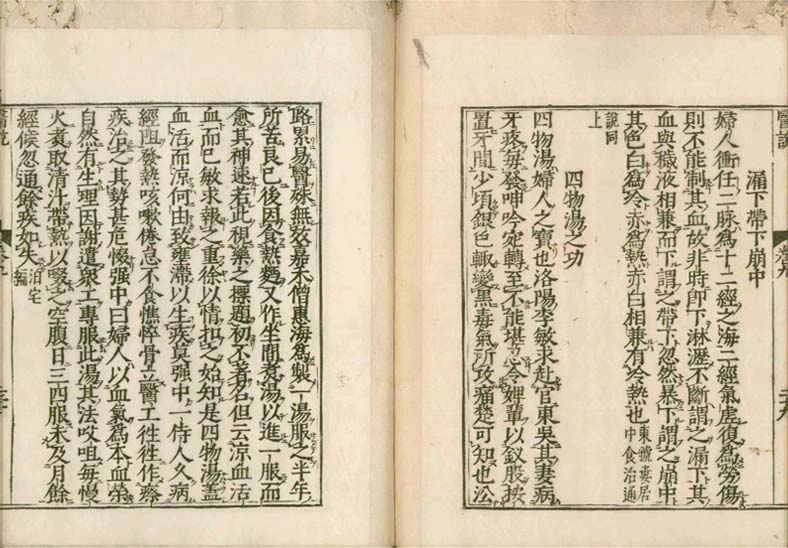 醫說
漏下帶下崩中
婦人衝任二脉爲十二經之海二經氣虛復爲勞傷
則不能制其血故非時即下淋瀝不斷謂之漏下其
血與穢液相兼而下謂之帶下忽然暴下謂之崩中
其色白爲冷赤爲熱赤白相兼有冷熱也
中食治通
說同
上
四物湯之功
四物湯婦人之寶也洛陽李敏求赴官東吳其妻病
牙疼每發呻吟宛轉至不能堪忍令婢輩以釵股按
置牙間少頃銀色輙變黑毒氣所攻痛楚可知也㳂
路累易醫殊無效嘉禾僧惠海爲製一湯服之半年
所苦良已後因食熱麫又作坐間煮湯以進一服而
愈其神速若此視藥之標題初不著名但云涼血活
血而已敏求報之重徐以情扣之始知是四物湯蓋
血活而涼何由致壅滯以生疾莫强中一侍人久病
經阻發熱咳嗽倦怠不食憔悴骨立醫工徃徃作瘵
疾治之其勢甚危惙强中曰婦人以血氣爲本血榮
自然有生理因謝遣衆工專服此湯其法㕮咀每慢
火煮取清汁帶熱以啜之空腹日三四服未及月餘
經候忽通餘疾如失
泊宅
編
醫說